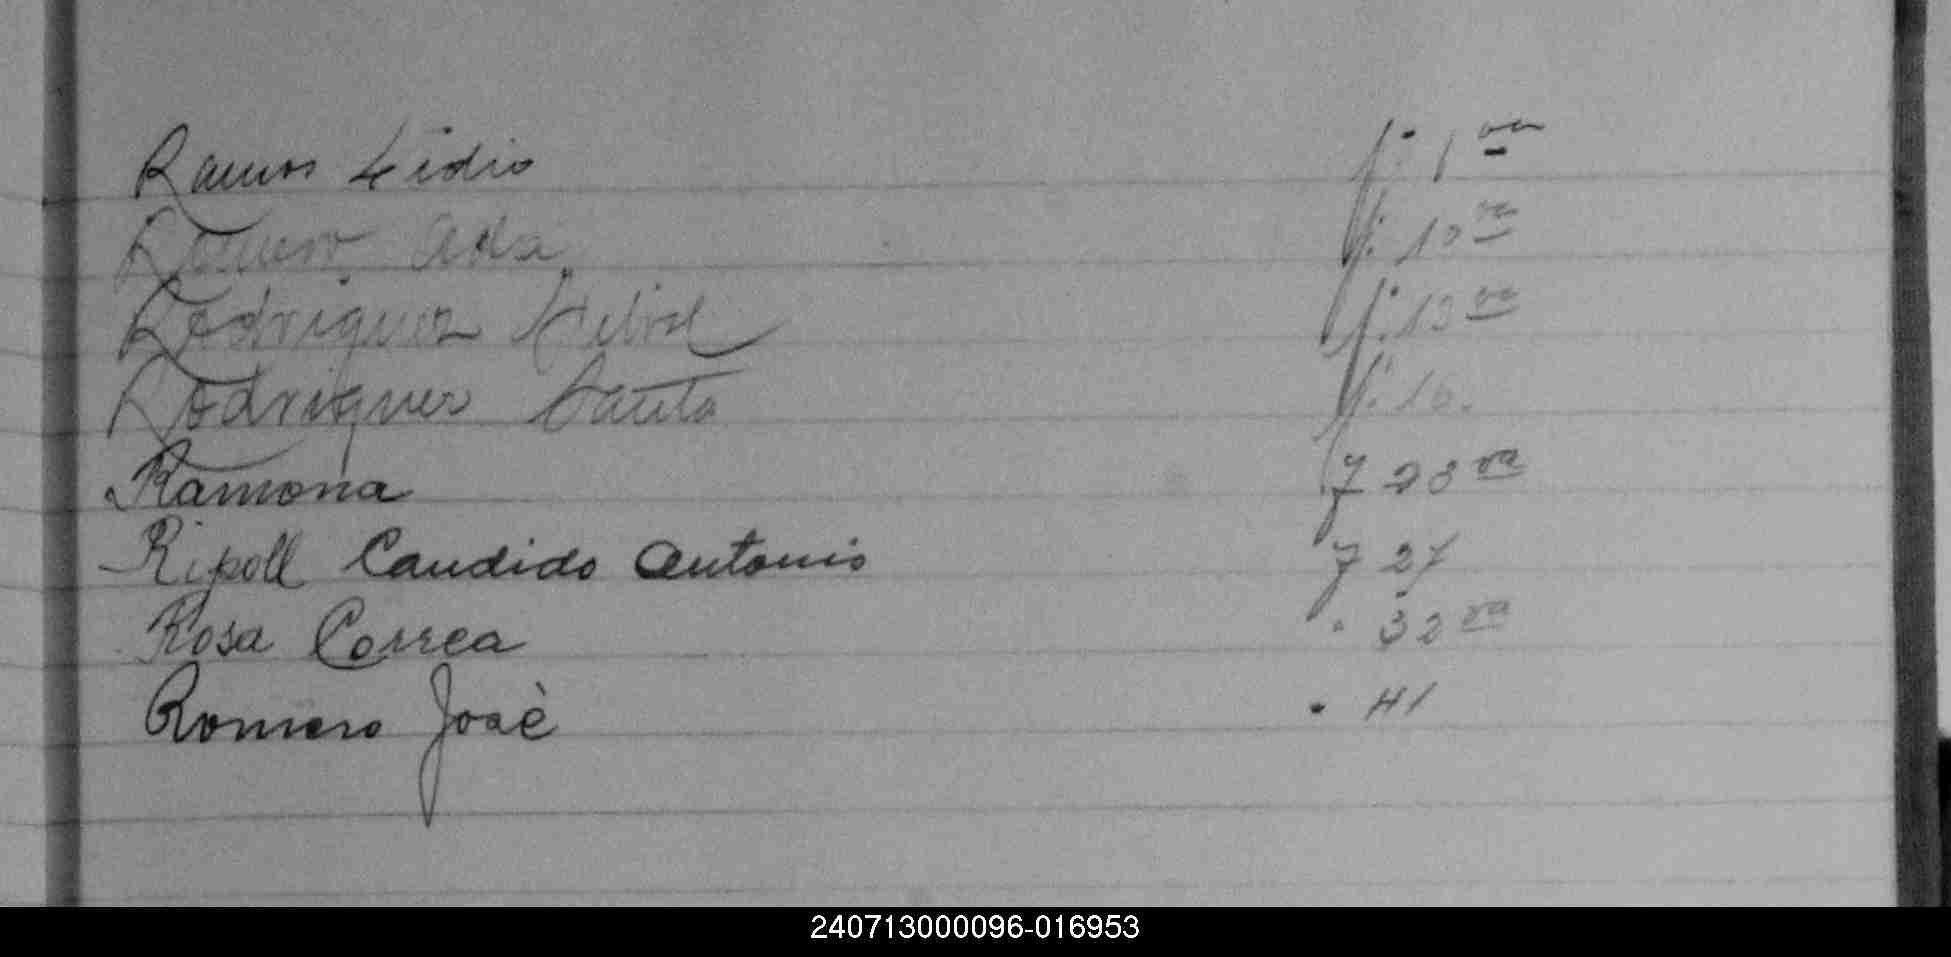 Ramos Lidio f. 1 va
Romero Ada f. 10 va
Rodriguez f. 13 va
Rodriguez Santa f. 16.
Ramona f 23 va
Ripoll Candido Antonio f 27
Rosa Correa " 32 va
Romero Josè " 41
240713000096-016953